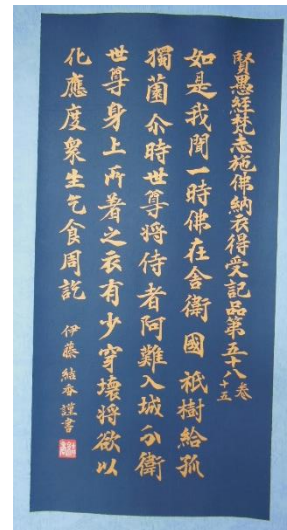 賢愚経梵志施佛納衣得受記品第五十八 巻十五
如是我聞一時佛在舎衛國祇樹給孤
獨薗尒時世尊将侍者阿難入城分衛
世尊身上所着之衣有少穿壊将欲以
化應度衆生乞食周訖
伊藤結香謹書